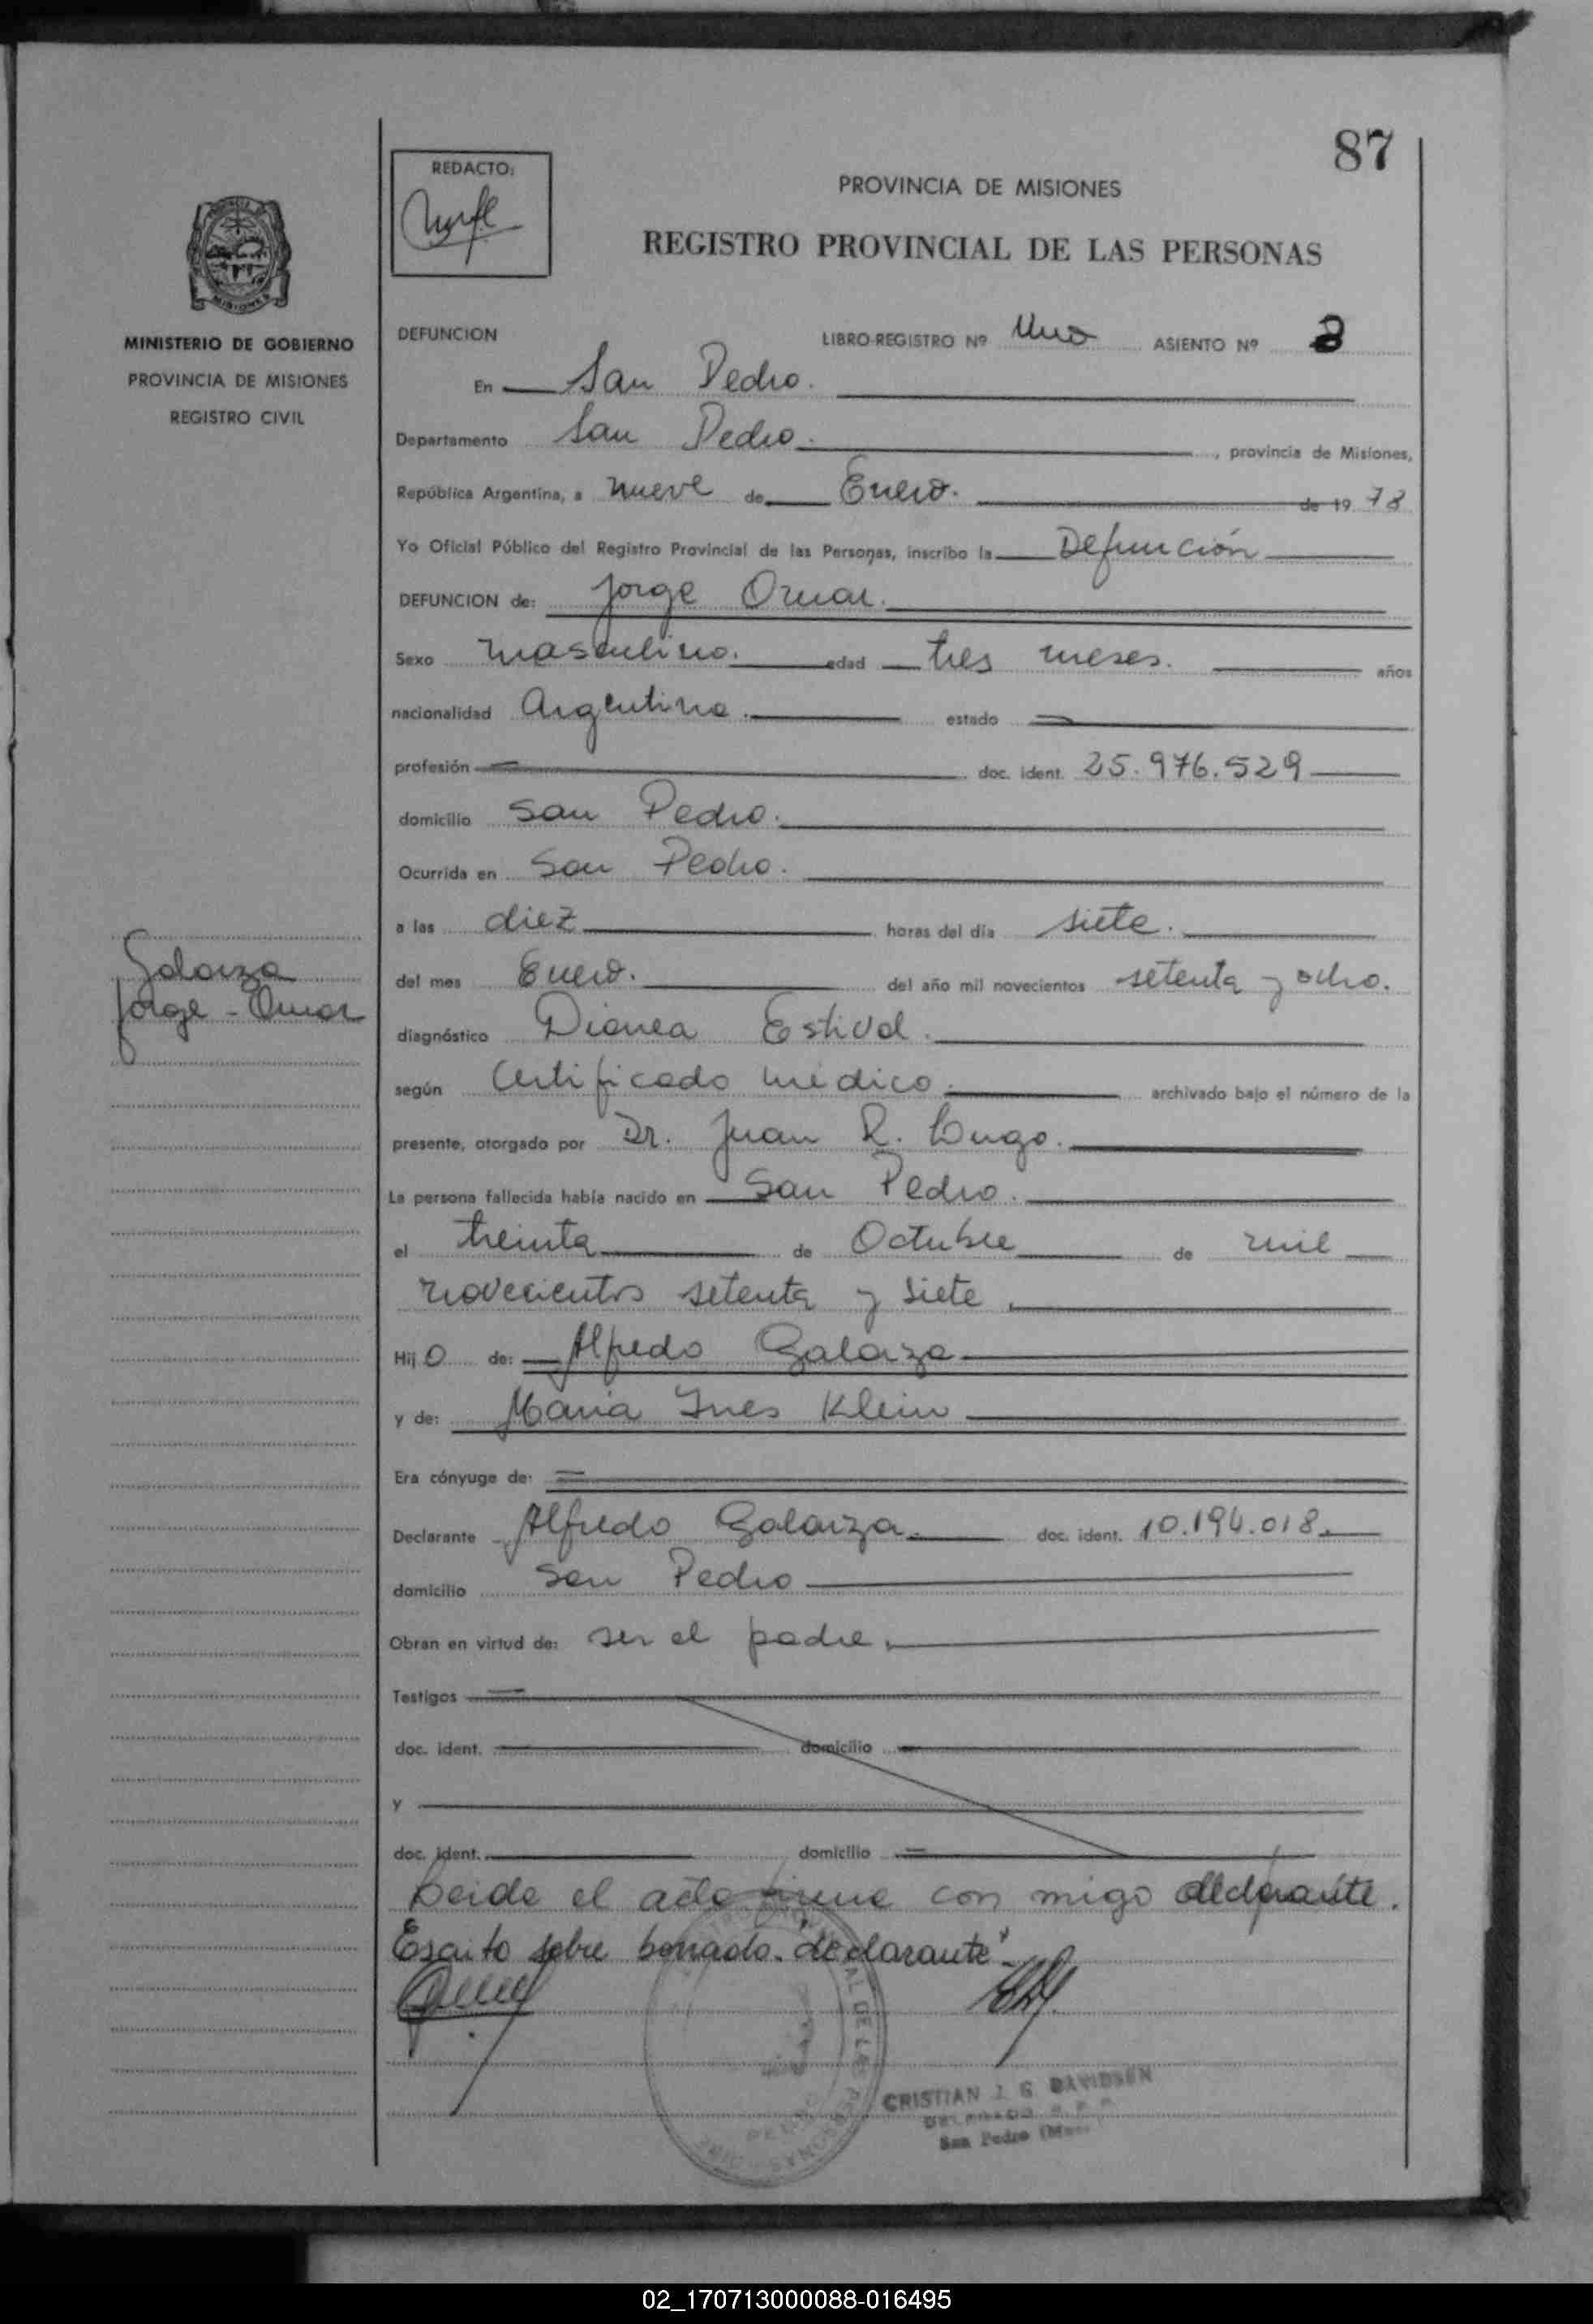 87
REDACTO:
PROVINCIA DE MISIONES
REGISTRO PROVINCIAL DE LAS PERSONAS
MINISTERIO DE GOBIERNO
PROVINCIA DE MISIONES
REGISTRO CIVIL
Galarza
Jorge - Omar
DEFUNCION LIBRO-REGISTRO Nº Uno ASIENTO Nº
En San Pedro.
Departamento San Pedro. , provincia de Misiones,
República Argentina, a nueve de Enero. de 19 78
Yo Oficial Público del Registro Provincial de las Personas, inscribo la Defunción
DEFUNCION de: Jorge Omar.
Sexo masculino. edad tres meses. años
nacionalidad Argentina. estado =
profesión = doc. ident. 25.976.529
domicilio San Pedro.
Ocurrida en San Pedro.
a las diez horas del día siete.
del mes Enero. del año mil novecientos setenta y ocho.
diagnóstico Diarrea Estival.
según Certificado médico. archivado bajo el número de la
presente, otorgado por Dr. Juan R. Lugo.
La persona fallecida había nacido en San Pedro.
el treinta de Octubre de mil
novecientos setenta y siete.
Hij o de: Alfredo Galarza
y de: Maria Ines Klein
Era cónyuge de: =
Declarante Alfredo Galarza. doc. ident. 10.194.018.
domicilio San Pedro
Obran en virtud de: ser el padre.
Testigos =
doc. ident. domicilio
y
doc. ident. domicilio =
Leida el acta firma con migo el declarante.
Escrito sobre borrado. "declarante".
AL DE LAS PERSONAS
PEDRO
CRISTIAN J. G. DAVIDSEN
DELEGADO R. P. P.
San Pedro
02_170713000088-016495